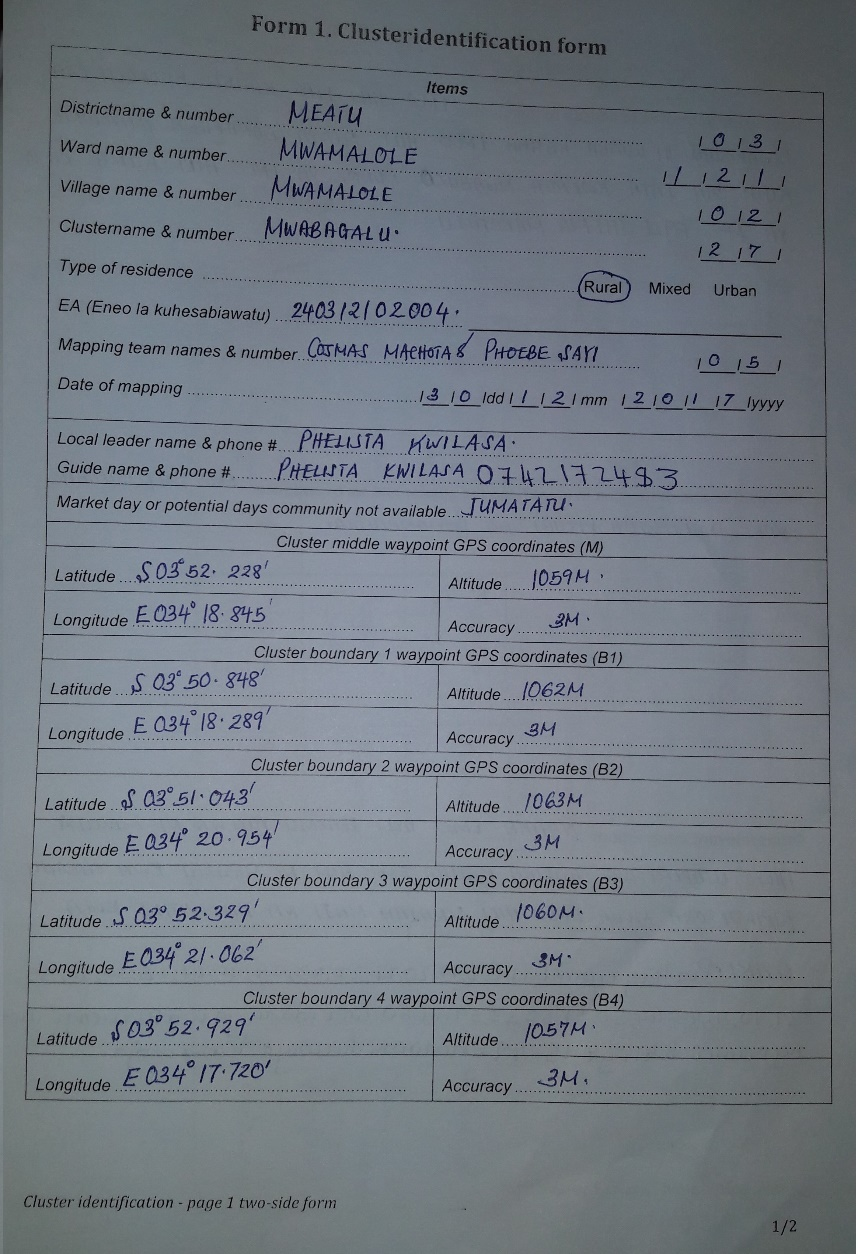 Form 1. Clusteridentification form
Items
Districtname & number MEATU |0|3|
Ward name & number MWAMALOLE |1|2|1|
Village name & number MWAMALOLE |0|2|
Clustername & number MWABAGALU. |2|7|
Type of residence Rural Mixed Urban
EA (Eneo la kuhesabiawatu) 240312102004.
Mapping team names & number COSMAS MACHOTA & PHOEBE SAYI |0|5|
Date of mapping |3|0|dd|1|2|mm |2|0|1|7|yyyy
Local leader name & phone # PHELISTA KWILASA.
Guide name & phone # PHELISTA KWILASA 0742172493
Market day or potential days community not available JUMATATU.
Cluster middle waypoint GPS coordinates (M)
Latitude S 03° 52. 228' Altitude 1059M.
Longitude E 034° 18. 845' Accuracy 3M.
Cluster boundary 1 waypoint GPS coordinates (B1)
Latitude S 03° 50. 848' Altitude 1062M
Longitude E 034° 18. 289' Accuracy 3M
Cluster boundary 2 waypoint GPS coordinates (B2)
Latitude S 03° 51. 043' Altitude 1063M
Longitude E 034° 20. 954' Accuracy 3M
Cluster boundary 3 waypoint GPS coordinates (B3)
Latitude S 03° 52. 329' Altitude 1060M.
Longitude E 034° 21. 062' Accuracy 3M.
Cluster boundary 4 waypoint GPS coordinates (B4)
Latitude S 03° 52. 929' Altitude 1057M.
Longitude E 034° 17. 720' Accuracy 3M.
Cluster identification - page 1 two-side form
1/2